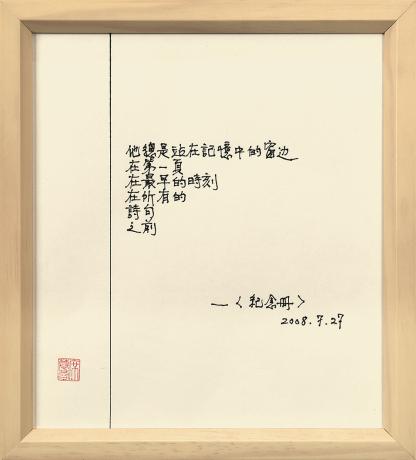 他總是站在記憶中的窗边
在第一頁
在最早的時刻
在所有的
詩句
之前
—〈紀念冊〉
2008.7.27